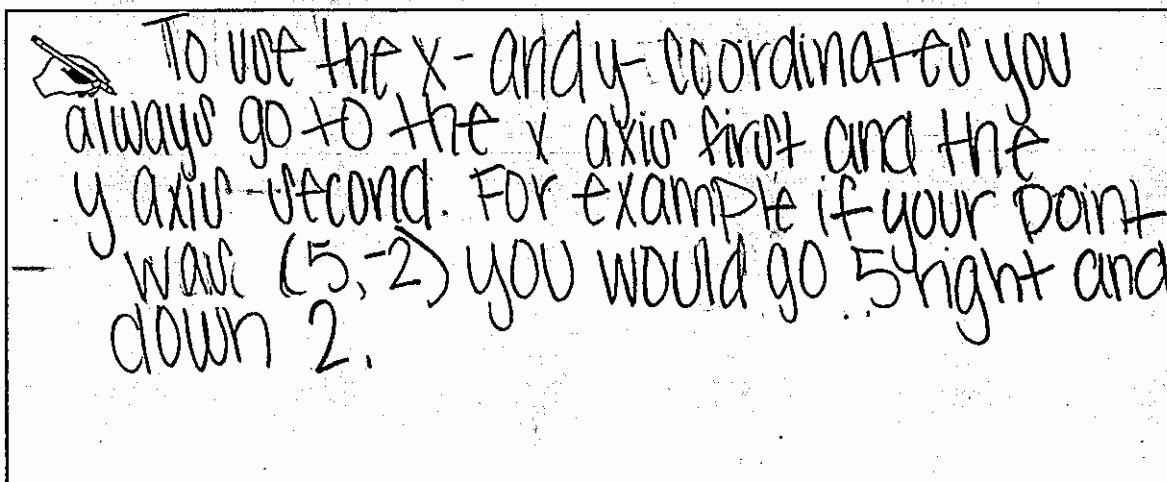 To use the x- and y- coordinates you
always go to the x axis first and the
y axis second. For example if your point
was (5,-2) you would go 5 right and
down 2.